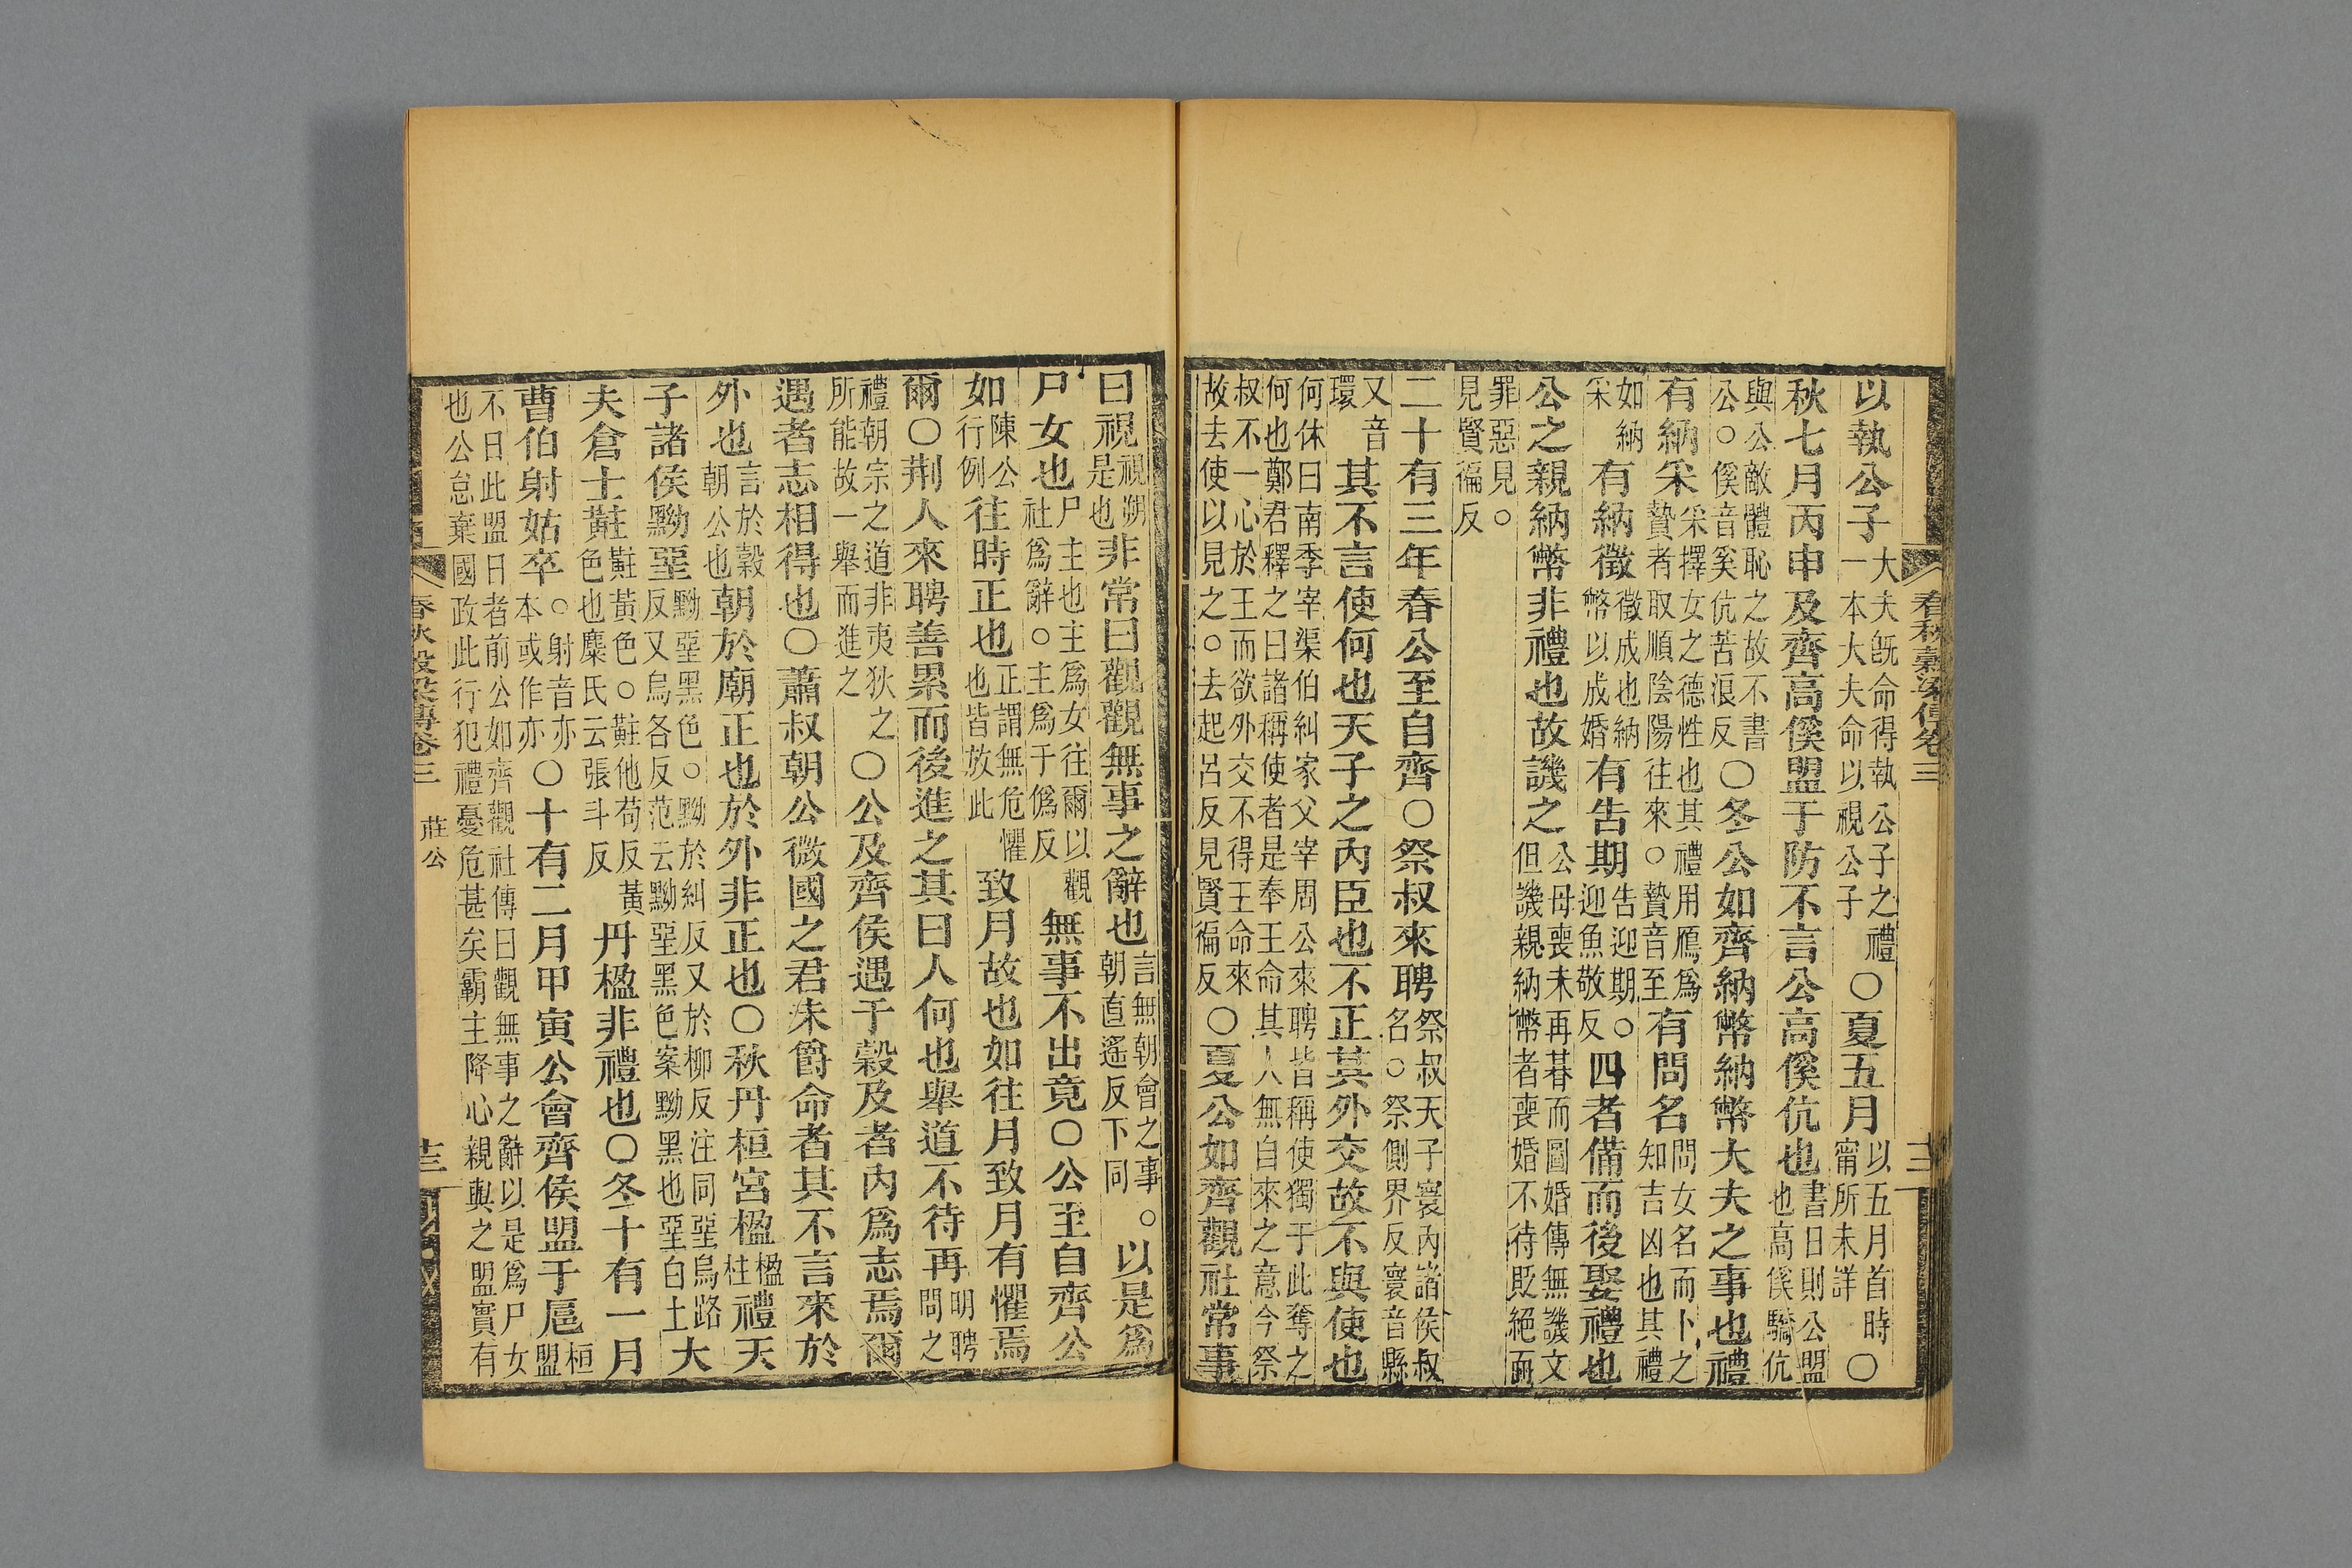 春秋穀梁傳卷三
以執公子大夫既命得執公子之禮一本大夫命以視公子〇夏五月以五月首時甯所未詳〇
秋七月丙申及齊高傒盟于防不言公高傒伉也書日則公盟也高傒驕伉
與公敵體恥之故不書公〇傒音奚伉苦浪反〇冬公如齊納幣納幣大夫之事也禮
有納采采擇女之德性也其禮用鴈爲贄者取順陰陽往來〇贄音至有問名問女名而卜之知吉凶也其禮
如納采有納徵徵成也納幣以成婚有告期告迎期〇迎魚敬反四者備而後娶禮也
公之親納幣非禮也故譏之公母喪未再朞而圖婚傳無譏文但譏親納幣者喪婚不待貶絕而
罪惡見〇見賢徧反
二十有三年春公至自齊〇祭叔來聘祭叔天子寰內諸侯叔名〇祭側界反寰音縣
又音環其不言使何也天子之內臣也不正其外交故不與使也
何休曰南季宰渠伯糾家父宰周公來聘皆稱使獨于此奪之何也鄭君釋之曰諸稱使者是奉王命其人無自來之意今祭
叔不一心於王而欲外交不得王命來故去使以見之〇去起呂反見賢徧反〇夏公如齊觀社常事
曰視視朔是也非常曰觀觀無事之辭也言無朝會之事〇朝直遙反下同以是爲
尸女也尸主也主爲女往爾以觀社爲辭〇主爲于僞反無事不出竟〇公至自齊公
如陳公行例往時正也正謂無危懼也皆放此致月故也如往月致月有懼焉
爾〇荆人來聘善累而後進之其曰人何也舉道不待再明聘問之
禮朝宗之道非夷狄之所能故一舉而進之〇公及齊侯遇于穀及者內爲志焉爾
遇者志相得也〇蕭叔朝公微國之君未爵命者其不言來於
外也言於穀朝公也朝於廟正也於外非正也〇秋丹桓宮楹楹柱禮天
子諸侯黝堊黝堊黑色〇黝於糾反又於柳反注同堊烏路反又烏各反范云黝堊黑色案黝黑也堊白土大
夫倉士黈黈黃色〇黈他苟反黃色也麋氏云張斗反丹楹非禮也〇冬十有一月
曹伯射姑卒〇射音亦本或作亦〇十有二月甲寅公會齊侯盟于扈桓盟
不日此盟日者前公如齊觀社傳曰觀無事之辭以是爲尸女也公怠棄國政此行犯禮憂危甚矣霸主降心親與之盟實有
春秋穀梁傳卷三 莊公